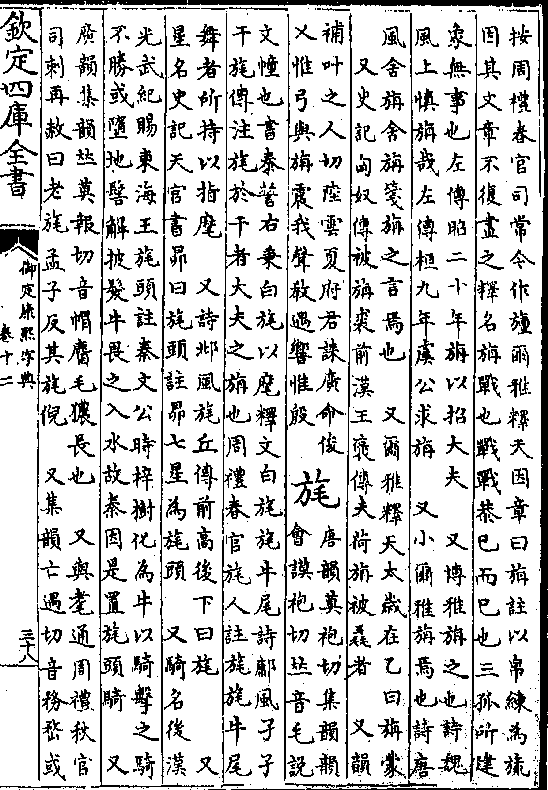 按周禮春官司常令作旜爾雅釋天因章曰旃註以帛練為旒
因其文章不復畫之釋名旃戰也戰戰恭巳而巳也三孤所建
象無事也左傳昭二十年旃以招大夫 又博雅旃之也詩魏
風上慎旃哉左傳桓九年虞公求旃 又小爾雅旃焉也詩唐
風舍旃舍旃箋旃之言焉也 又爾雅釋天太歲在乙曰旃蒙
又史記匈奴傳被旃裘前漢王褒傳夫荷旃被毳者 又韻
補叶之人切陸雲夏府君誄廣命俊
乂惟弓與旃震我聲教遇響惟殷 旄 唐韻莫袍切集韻韻
會謨袍切𠀤音毛說
文幢也書泰誓右秉白旄以麾釋文白旄旄牛尾詩鄘風孑孑
干旄傳注旄於干者大夫之旃也周禮春官旄人註旄旄牛尾
舞者所持以指麾 又詩邶風旄丘傳前高後下曰旄 又
星名史記天官書昴曰旄頭註昴七星為旄頭 又騎名後漢
光武紀賜東海王旄頭註秦文公時梓樹化為牛以騎擊之騎
不勝或墮地髻解披髮牛畏之入水故秦因是置旄頭騎 又
廣韻集韻𠀤莫報切音帽麕毛獶長也 又與耄通周禮秋官
司刺再赦曰老旄孟子反其旄倪 又集韻亡遇切音務嵍或
欽定四庫全書
御定康熙字典
卷十二
三十八